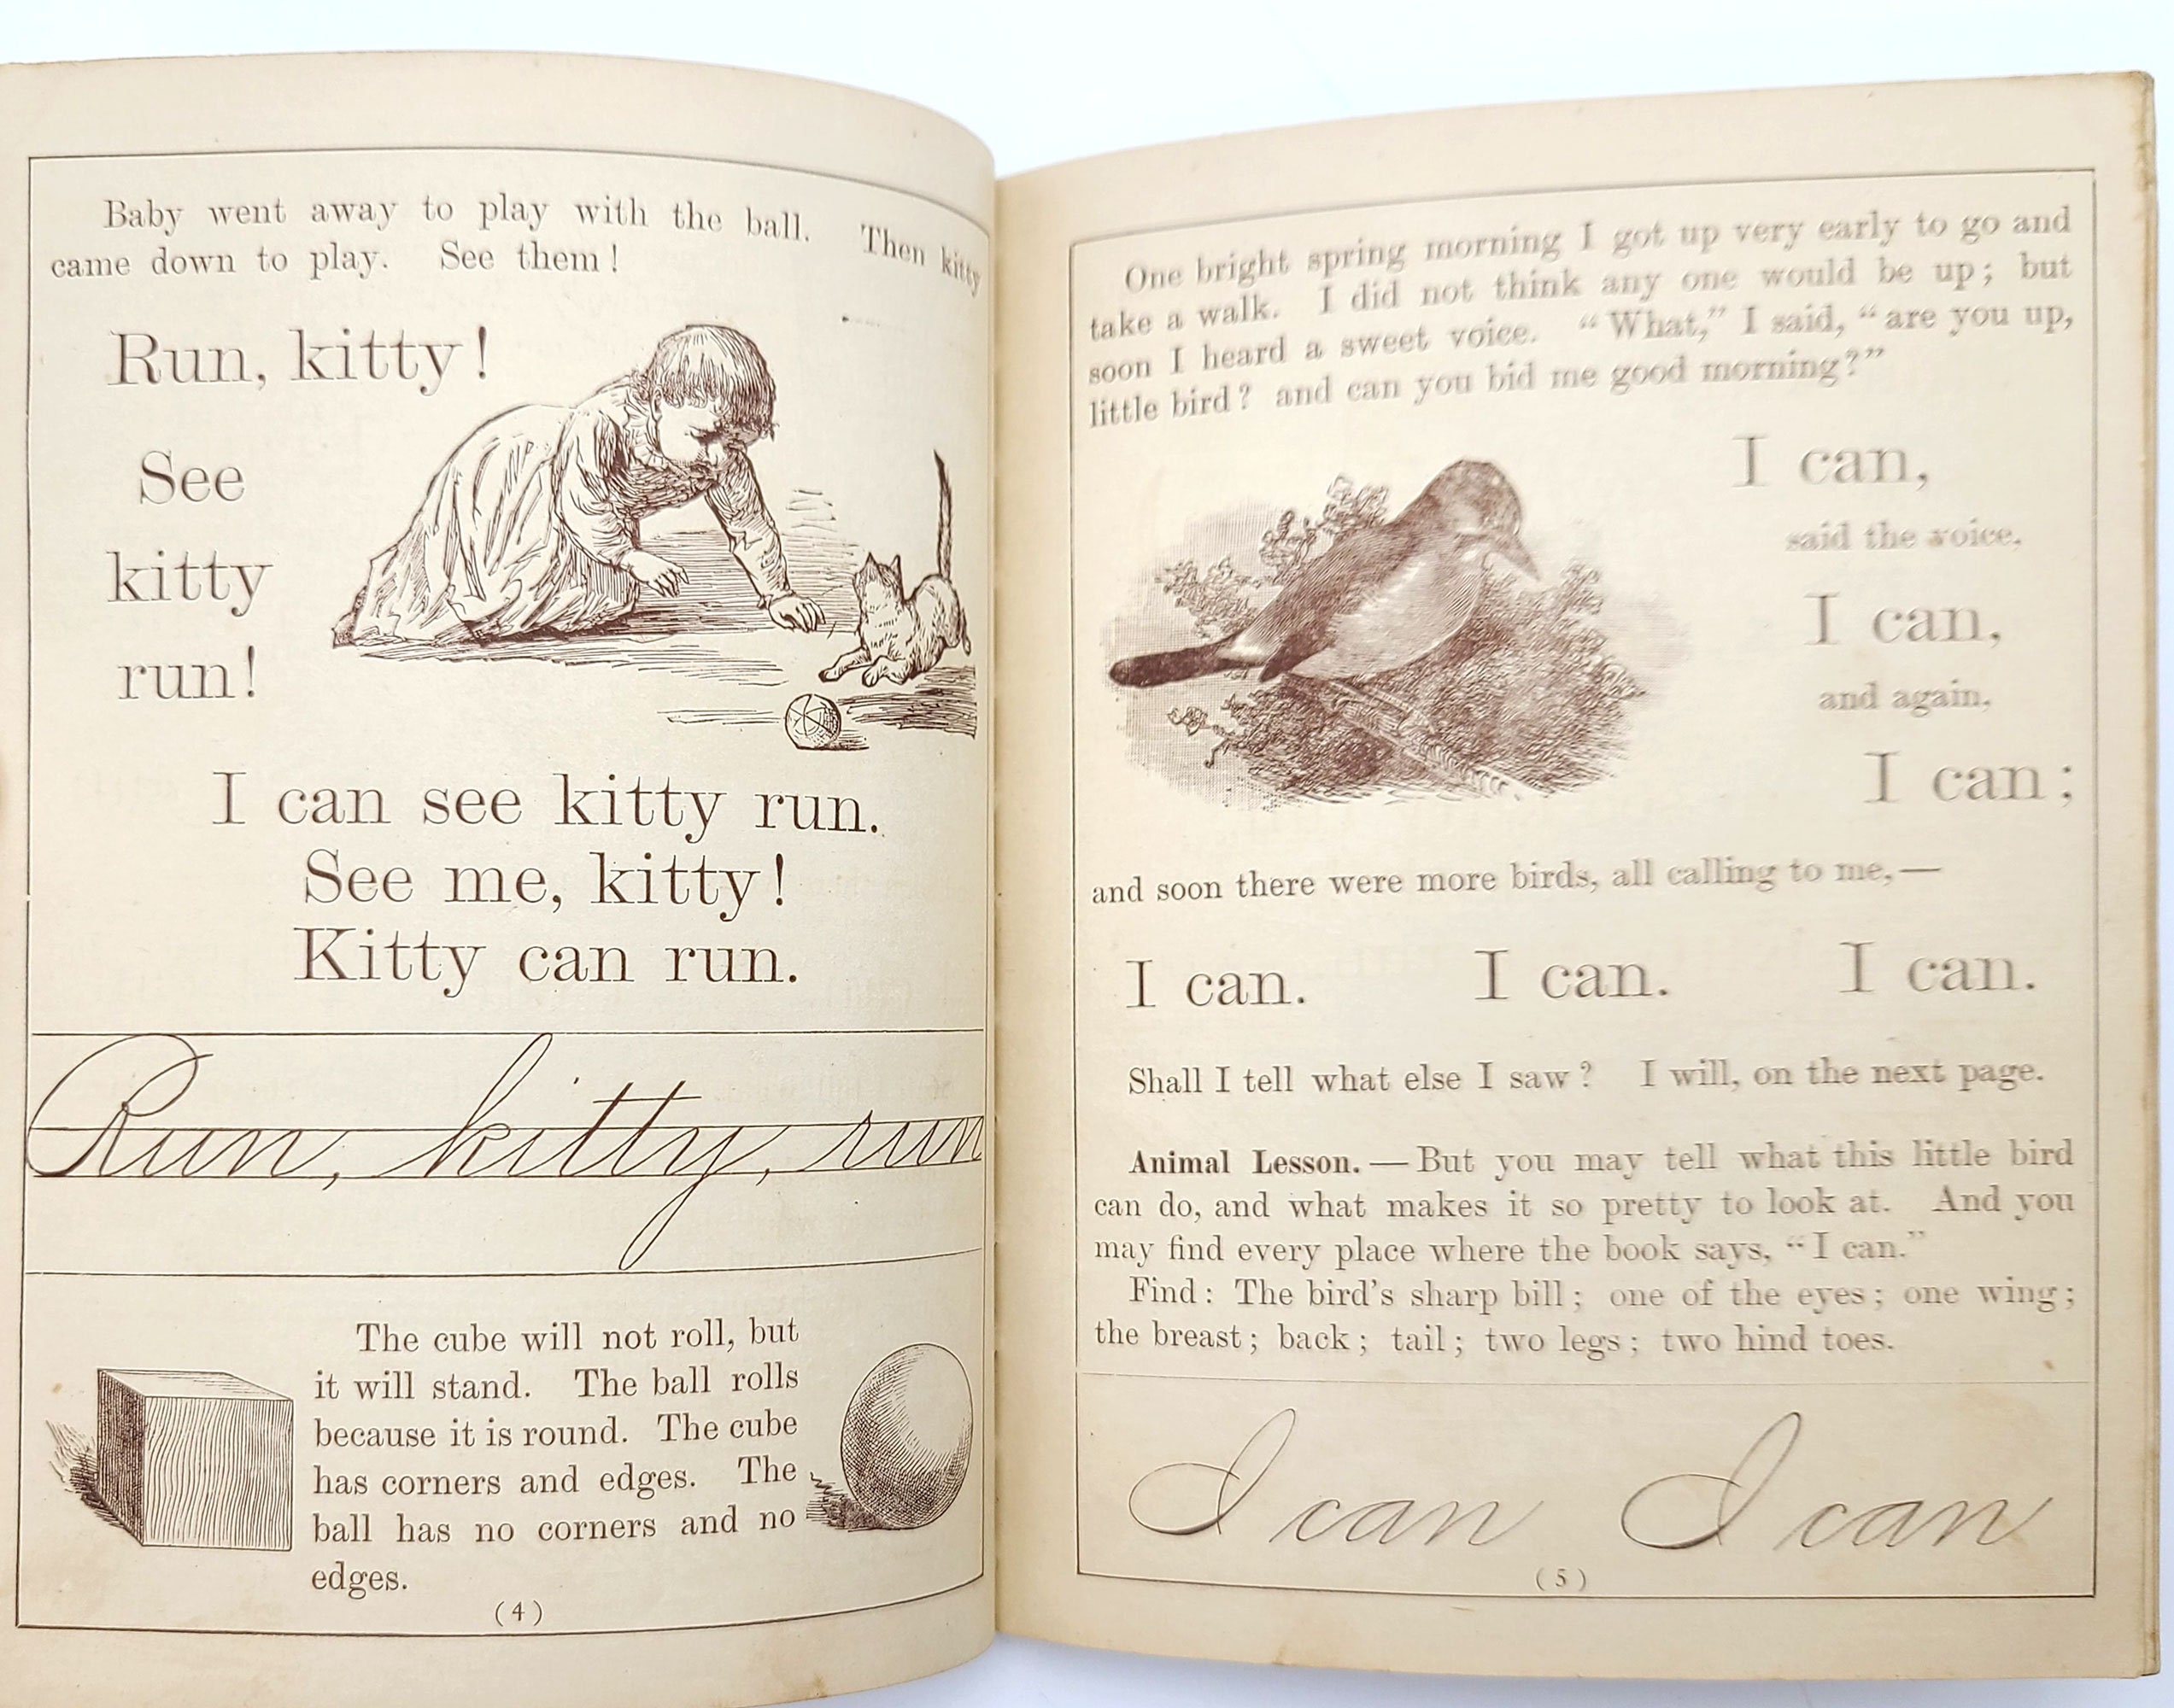 Baby went away to play with the ball. Then kitty
came down to play. See them!
Run, kitty!
See
kitty
run!
I can see kitty run.
See me, kitty!
Kitty can run.
Run, kitty, run
The cube will not roll, but
it will stand. The ball rolls
because it is round. The cube
has corners and edges. The
ball has no corners and no
edges.
(4)
One bright spring morning I got up very early to go and
take a walk. I did not think any one would be up; but
soon I heard a sweet voice. “What,” I said, “are you up,
little bird? and can you bid me good morning?”
I can,
said the voice,
I can,
and again,
I can;
and soon there were more birds, all calling to me,—
I can. I can. I can.
Shall I tell what else I saw? I will, on the next page.
Animal Lesson. — But you may tell what this little bird
can do, and what makes it so pretty to look at. And you
may find every place where the book says, “I can.”
Find: The bird's sharp bill; one of the eyes; one wing;
the breast; back; tail; two legs; two hind toes.
I can I can
(5)